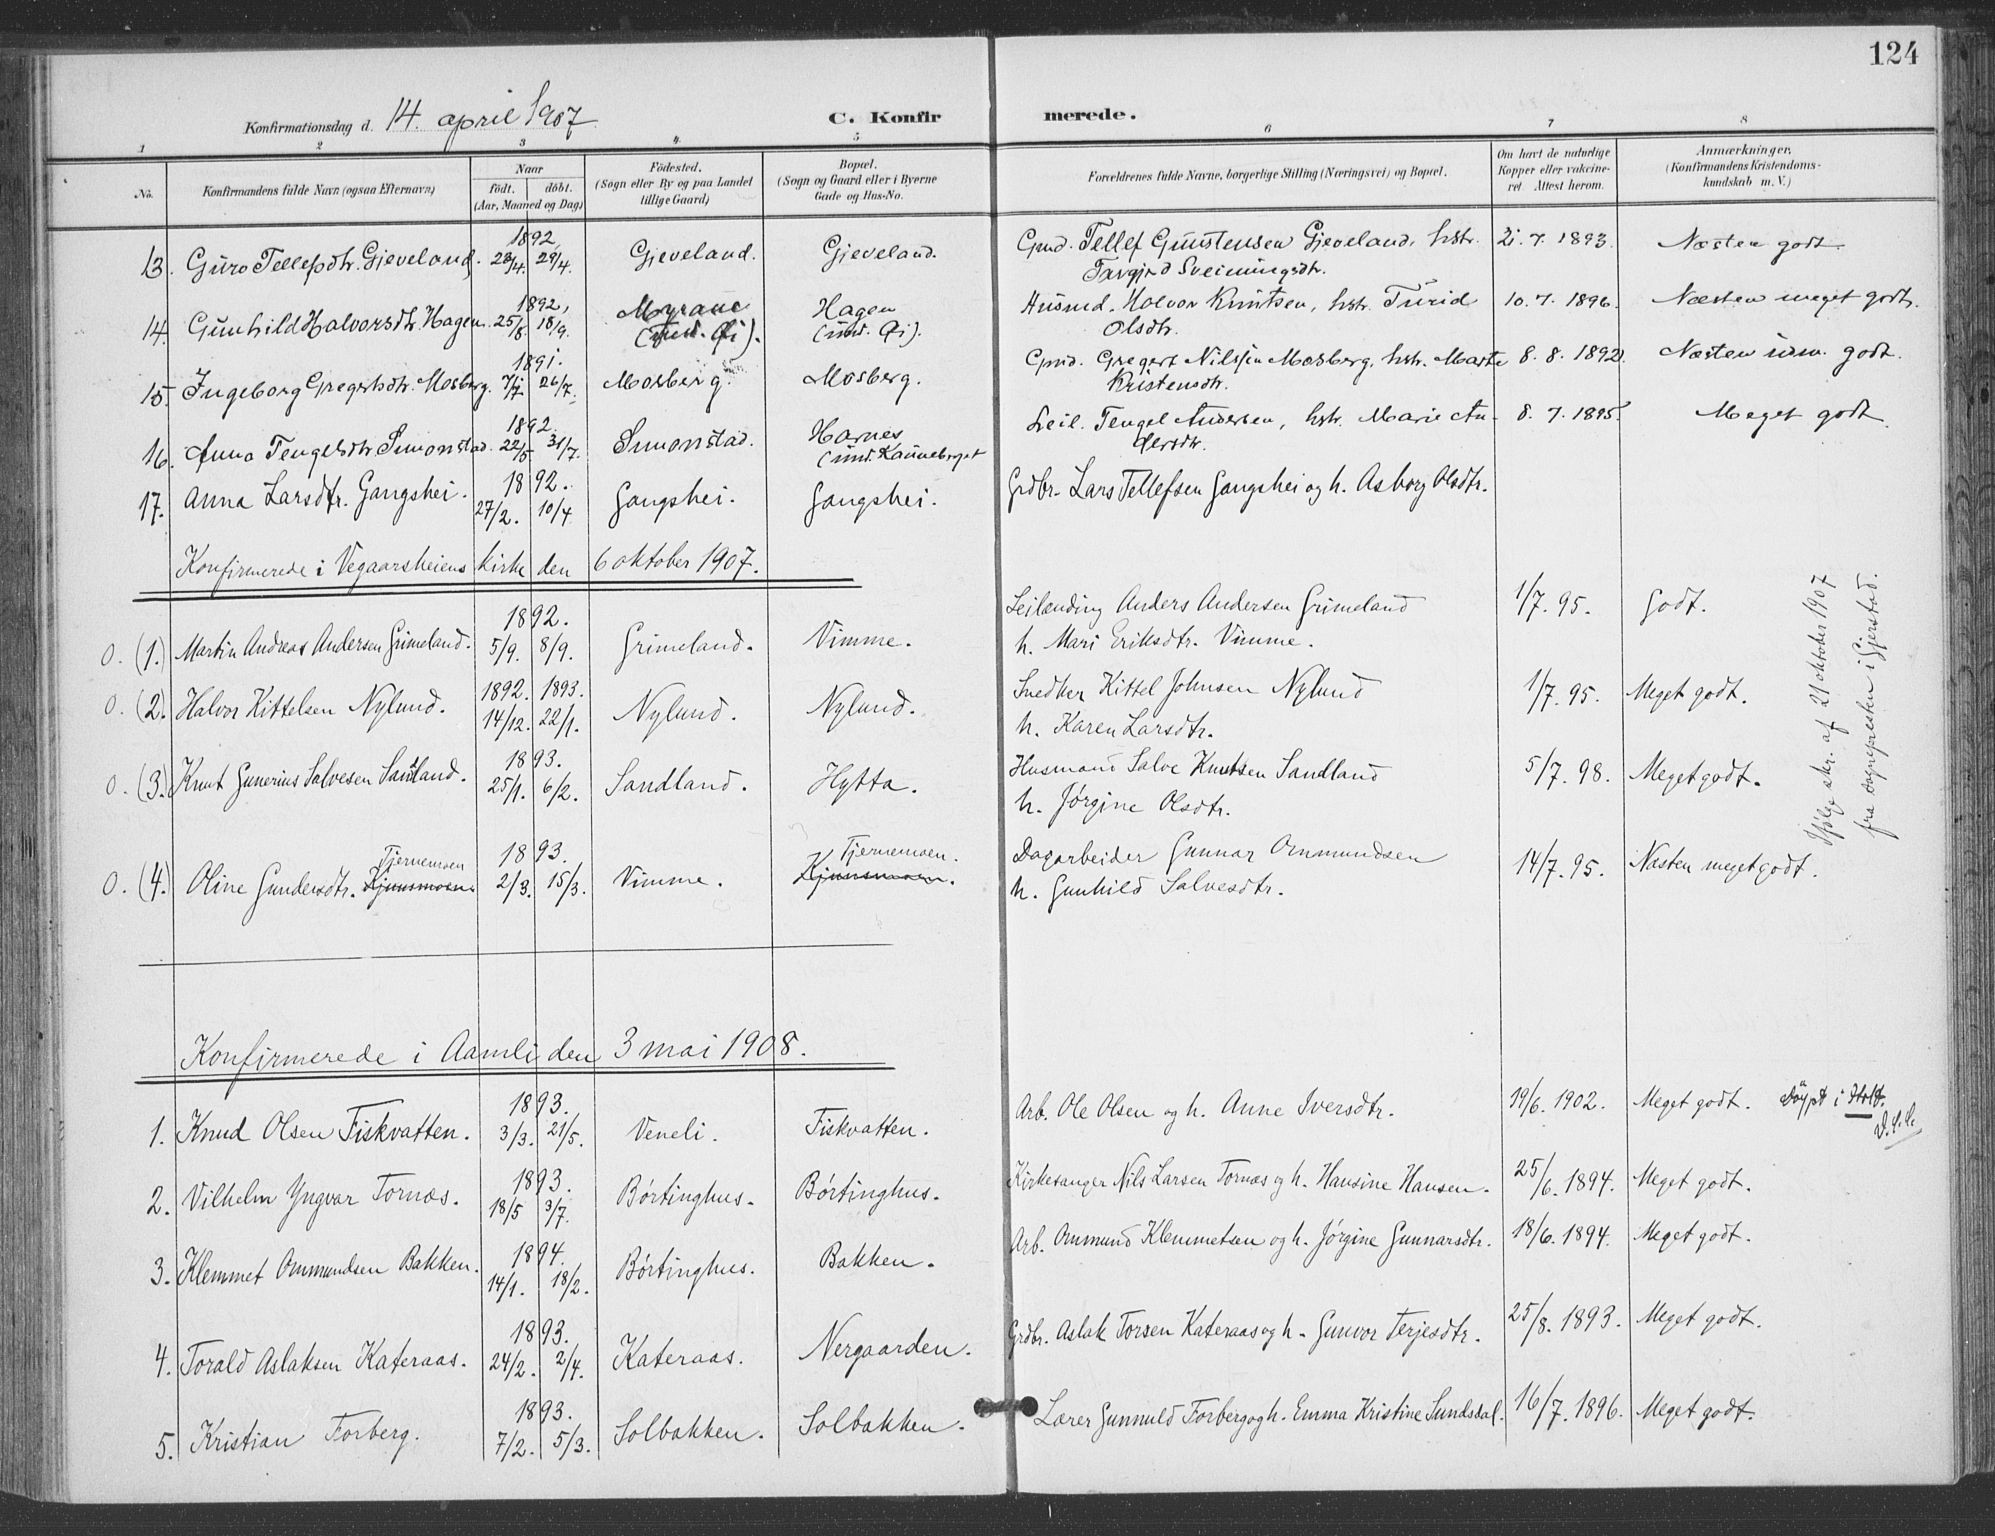 124
Konfirmationsdag d. 14. april 1907
C. Konfirmerede.
1 2 3 4. 5 6 7 8
No. Konfirmandens fulde Navn (ogsaa Efternavn) Naar födt. döbt. (Aar, Maaned og Dag) Födested. (Sogn eller By og paa Landet tillige Gaard) Bopæl. (Sogn og Gaard eller i Byerne Gade og Hus-No. Forældrenes fulde Navne, borgerlige Stilling (Næringsvei) og Bopæl. Om havt de naturlige Kopper eller vakcineret. Attest herom. Anmærkninger. (Konfirmandens Kristendomskundskab m. V.)
1892
13. Guro Tellefsdtr. Gjeveland. 23/4. 29/4. Gjeveland. Gjeveland. Gmd. Tellef Gunstensen Gjeveland, hstr. 21. 7. 1893. Næsten godt.
Targjerd Sveinungsdtr.
1892,
14. Gunhild Halvorsdtr. Hagen. 25/8 18/9. Myrane Hagen Husmd. Halvor Knutsen, hstr. Turid 10. 7. 1896. Næsten meget godt.
(und. Øi). (und. Øi). Olsdtr.
1891.
15. Ingeborg Gregersdtr. Mosberg. 7/7 26/7. Mosberg. Mosberg. Gmd. Gregert Nilssen Mosberg, hstr. Marte 8. 8. 1892. Næsten udm. godt.
Kristensdtr.
1892.
16. Anna Tengelsdtr Simonstad. 22/5 31/7. Simonstad. Harnes Leil. Tengel Andersen, hstr. Marie An- 8. 7. 1895. Meget godt
(und. Kanneberget dersdtr.
1892.
17. Anna Larsdtr. Gangshei. 27/2. 10/4. Gangshei. Gangshei. Grdbr. Lars Tellefsen Gangshei og h. Asborg Olsdtr.
Konfirmerede i Vegaarsheiens kirke den 6 oktober 1907.
1892.
0. (1.) Martin Andreas Andersen Grimeland. 5/9. 8/9. Grimeland. Vimme. Leilænding Anders Andersen Grimeland 1/7. 95. Godt.
h. Mari Eriksdtr. Vimme.
1892. 1893.
0. (2.) Halvor Kittelsen Nylund. 14/12. 22/1. Nylund. Nylund. Snedker Kittel Johnsen Nylund 1/7. 95. Meget godt.
h. Karen Larsdtr.
1893.
0. (3.) Knut Gunerius Salvesen Sandland. 25/1. 6/2. Sandland. Hytta. Husmand Salve Knutsen Sandland 5/7. 98. Meget godt.
h. Jørgine Olsdtr.
Tjernemoen 1893. Tjernemoen.
0. (4.) Oline Gundersdtr. Kjunsmoen. 2/3. 15/3. Vimme. Kjunsmoen. Dagarbeider Gunnar Ommundsen 14/7. 95. Næsten meget godt.
h. Gunhild Salvesdtr.
Ifølge skr. af 21 oktober 1907
fra sognepresten i Gjerstad.
Konfirmerede i Aamli den 3 mai 1908.
1893.
1. Knud Olsen Fiskvatten. 3/3. 21/5. Veneli. Fiskvatten. Arb. Ole Olsen og h. Anne Iversdtr. 19/6. 1902. Meget godt. Døypt i Holt.
1893.
2. Vilhelm Yngvar Tornæs. 18/5 3/7. Børtinghus. Børtinghus. Kirkesanger Nils Larsen Tornæs og h. Hansine Hansen. 25/6. 1894. Meget godt.
1894.
3. Klemmet Ommundsen Bakken. 14/1. 18/2. Børtinghus. Bakken. Arb. Ommund Klemmetsen og h. Jørgine Gunnarsdtr. 18/6. 1894. Meget godt.
1893.
4. Torald Aslaksen Kateraas. 24/2. 2/4. Kateraas. Nergaarden. Grdbr. Aslak Torsen Kateraas og h. Gunvor Terjesdtr. 25/8. 1893. Meget godt.
1893.
5. Kristian Forberg. 7/2. 5/3. Solbakken. Solbakken. Lærer Gunnuld Forberg og h. Emma Kristine Sundsdal. 16/7. 1896. Meget godt.